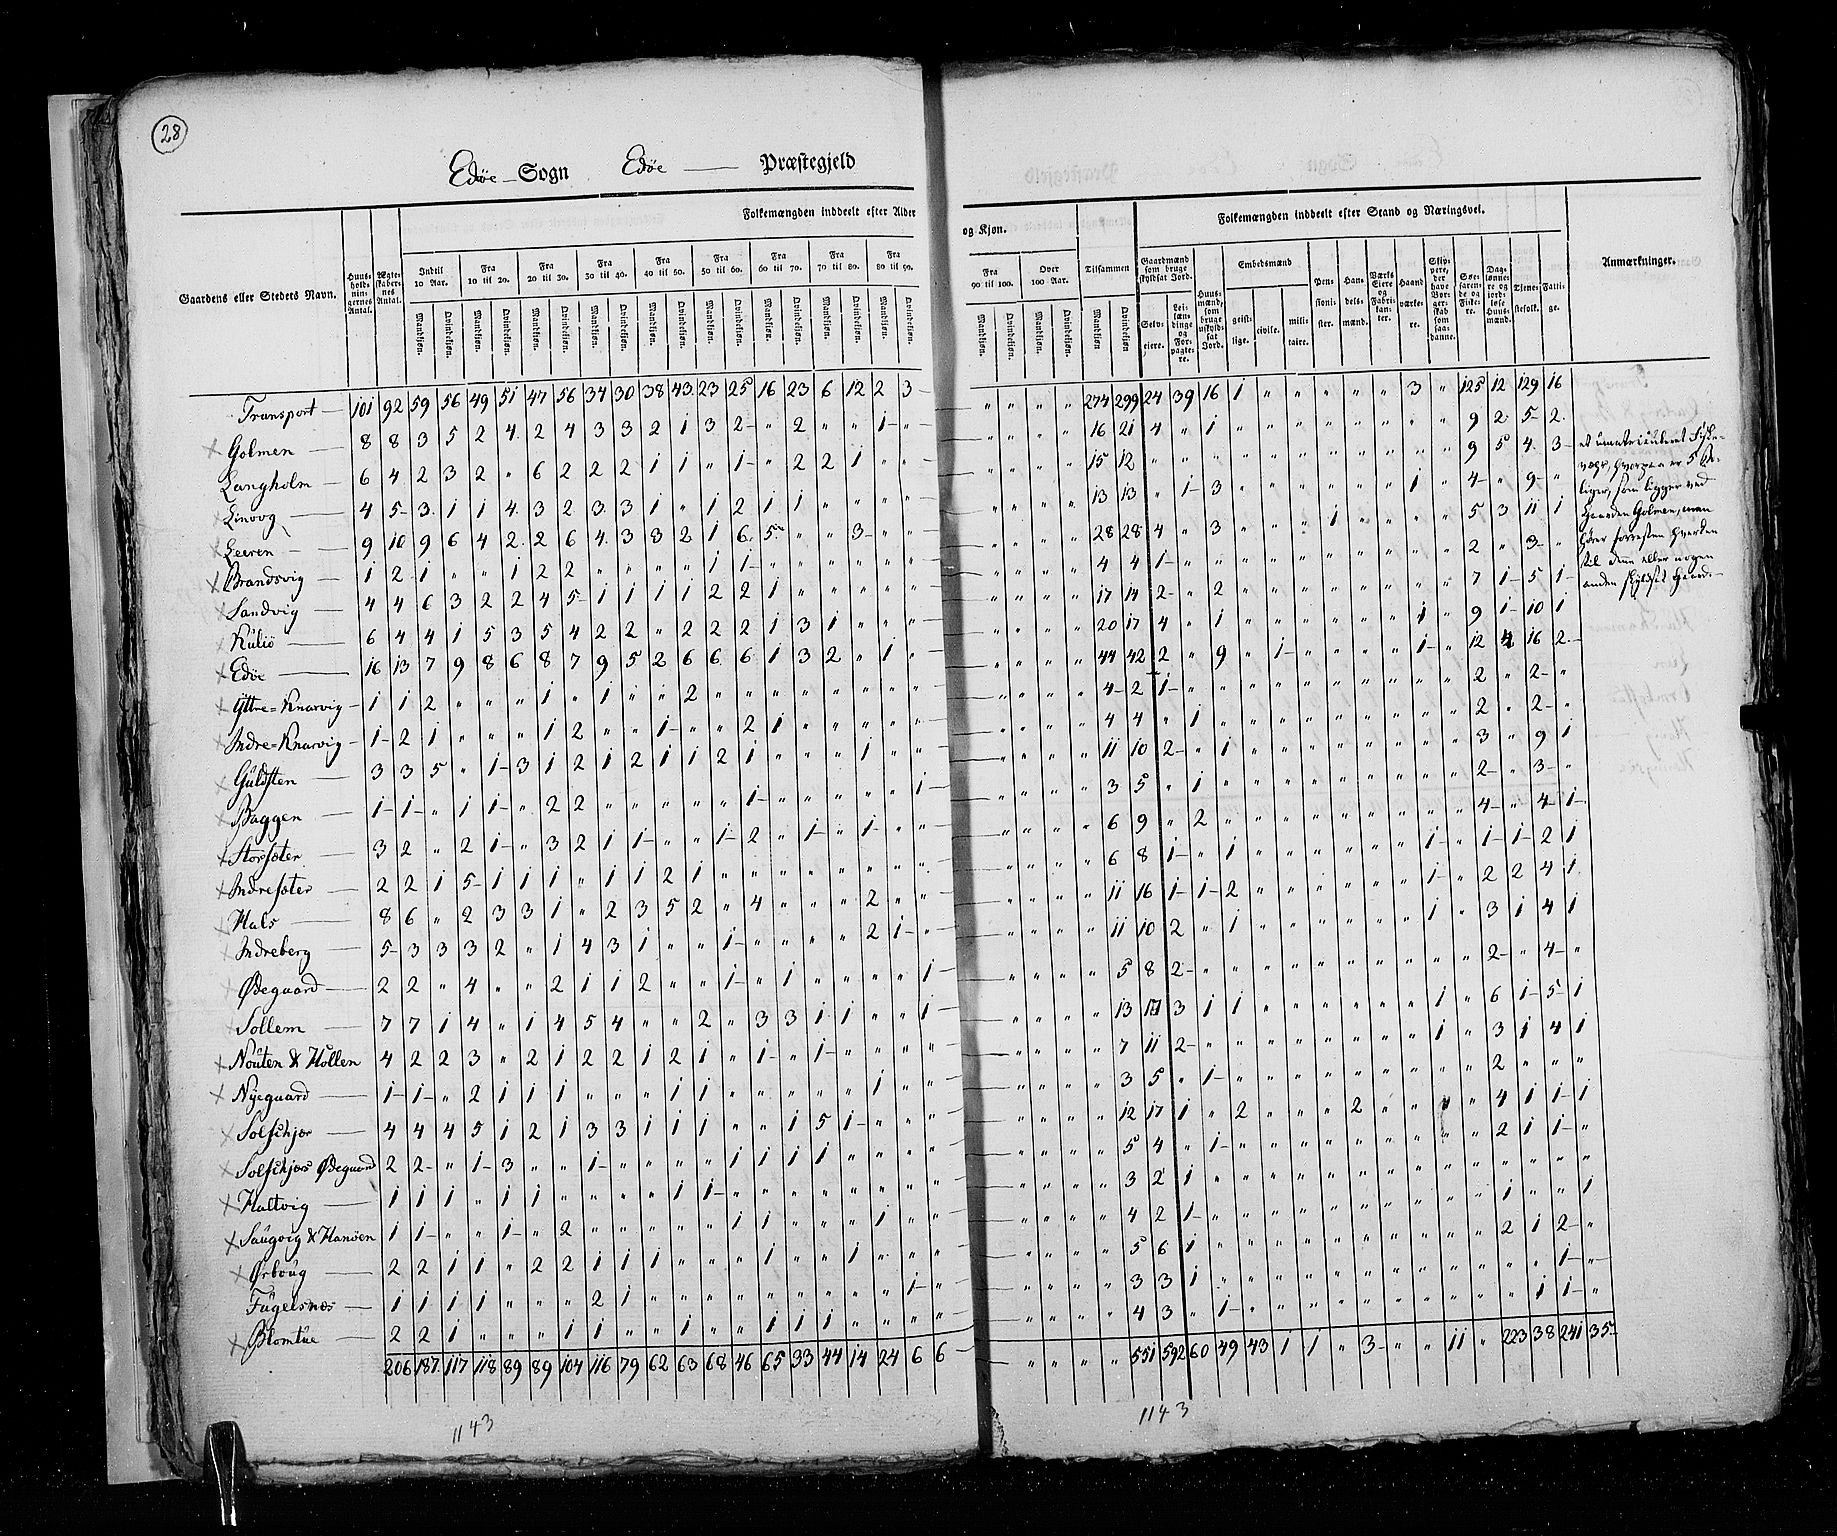 28
Edöe Sogn Edöe Præstegjeld
Folkemængden inddeelt efter Alder og Kjøn.
Folkemængden inddeelt efter Stand og Næringsvei.
Gaardens eller Stedets Navn.
Huusholdningernes Antal.
Ægteskabernes Antal.
Indtil 10 Aar.
Fra 10 til 20.
Fra 20 til 30.
Fra 30 til 40.
Fra 40 til 50.
Fra 50 til 60.
Fra 60 til 70.
Fra 70 til 80.
Fra 80 til 90.
Fra 90 til 100.
Over 100 Aar.
Tilsammen
Mandkjøn. Qvindekjøn.
Gaardmænd som bruge skyldsat Jord.
Selveiere.
Leilændinge og Forpagtere.
Huusmænd, som bruge uskyldsat Jord.
Embedsmænd
geistlige. civile. militaire.
Pensionister.
Handelsmænd.
Værks Eiere og Fabrikanter.
Haandværkere.
Skippere, der have Borgerskab som saadanne.
Søefarende og Fiskere.
Daglønnere og jordløse Huusmænd.
Tjenestefolk.
Fattige.
Anmærkninger.
Transport 101 92 59 56 49 51 47 56 34 30 38 43 23 25 16 23 6 12 2 3 " " " " 274 299 24 39 16 1 " " " " " 3 " 125 12 129 16
Golmen 8 8 3 5 2 4 2 4 3 3 2 1 3 2 " 2 " " 1 " " " " " 16 21 4 " 1 " " " " " " " " 9 2 5 2
Langholm 6 4 2 3 2 " 6 2 2 2 1 1 " 1 " 2 2 1 " " " " " " 15 12 " " " " " " " " " " " 9 5 4 3
Linvog 4 5 3 1 1 4 3 2 3 3 1 " 1 2 1 1 " " " " " " " " 13 13 " 1 3 " " " " " " 1 " 4 " 9 "
Leeren 9 10 9 6 4 2 2 6 4 3 3 2 1 6 5 " " 3 " " " " " " 28 28 4 " 3 " " " 1 " " " " 5 3 11 1
Brandsvig 1 2 1 " " 1 2 2 " " " " 1 1 " " " " " " " " " " 4 4 1 " " " " " " " " " " 2 " 3 "
Sandvig 4 4 6 3 2 2 4 5 1 1 1 1 2 2 1 " " " " " " " " " 17 14 2 " 2 " " " " " " " " 7 1 5 1
Kuliö 6 4 4 1 5 3 5 4 2 2 " 2 2 2 1 3 1 " " " " " " " 20 17 4 " 1 " " " " " " 1 " 9 1 10 1
Edöe 16 13 7 9 8 6 8 7 9 5 2 6 6 6 1 3 2 " 1 " " " " " 44 42 2 " 9 " 1 " " " " 1 " 12 4 16 2
Yttre=Knarvig 1 1 2 " " " 1 " 1 " " 2 " " " " " " " " " " " " 4 2 1 " " " " " " " " " " 2 " 2 "
Indre=Knarvig 1 2 1 " " " 1 2 " " 1 " " 2 1 " " " " " " " " " 4 4 " 1 " " " " " " " " 2 " 2 "
Guldsten 3 3 5 " 1 3 1 2 1 2 1 1 2 1 " " " 1 " " " " " " 11 10 2 " 1 " " " " " " " " 3 " 9 1
Baggen 1 1 " 1 1 " 2 2 " " " " " 1 " " " " " 1 " " " " 3 5 " 1 " " " " " " " " " 2 " 3 "
Storsæter 3 2 " 2 1 " 3 2 1 1 " " 1 2 " 1 " 1 " " " " " " 6 9 " 2 " " " " " " " " " 4 " 4 1
Indresæter 2 2 1 5 1 1 1 " 1 1 2 1 " " " " " " " " " " " " 6 8 1 " 1 " " " " " " 1 " 1 1 2 1
Hals 8 6 " 2 3 3 1 " 2 3 5 2 " 4 " " " 2 " " " " " " 11 16 1 1 2 " " " " " " 1 " 2 2 4 1
Indreberg 5 3 3 3 2 " 1 4 3 1 " " 1 " " " " 2 1 " " " " " 11 10 2 " 1 " " " " " " 1 " 3 1 4 1
Ødegaard 2 2 " 4 " " 2 1 1 2 " " 1 " 1 " " " " 1 " " " " 5 8 2 " " " " " " " " " " 2 " 4 "
Sollem 7 7 1 4 " 1 4 5 4 " " 2 " 3 3 1 1 " " 1 " " " " 13 17 3 1 1 " " " " " " 1 " 6 1 5 1
Nouten & Hollen 4 2 2 3 " 2 1 2 2 1 2 1 " 1 " 1 " " " " " " " " 7 11 2 " " " " " " " " 1 " 3 1 4 1
Nyegaard 1 1 " 2 1 1 1 " " " 1 1 " " " " " 1 " " " " " " 3 5 " 1 " " " " " " " " " 2 " " "
Solschjör 4 4 4 5 1 2 1 3 3 1 1 1 " " 1 5 1 " " " " " " " 12 17 1 " 2 " " " 2 " " " " 4 1 1 1
Solschjörs Ødegaard 2 2 " 1 3 " " 1 " " " " 1 1 1 1 " " " " " " " " 5 4 " 1 " " " " " " " " " 2 1 1 "
Haltvig 1 1 1 " 1 1 " " " " 1 1 " " " " " " " " " " " " 3 2 1 " " " " " " " " " " " " " "
Saugvig & Hanöen 1 1 " " 1 " 2 " " " " " 1 1 " " " 1 " " " " " " 4 2 1 " " " " " " " " " " 1 " " 1
Ørboug 2 2 1 1 " 2 2 1 1 1 " " " " 1 " " 1 " " " " " " 5 6 1 " " " " " " " " " " 2 1 2 "
Fugelsnæs 1 1 1 1 " " " 2 1 " " " " " " " " " 1 " " " " " 3 3 1 " " " " " " " " " " " " 1 "
Blomtue 2 2 1 " " " 1 1 " " 1 " " 1 1 1 " " " " " " " " 4 3 " 1 " " " " " " " " " " 1 1 "
206 187 117 118 89 89 104 116 79 62 63 68 46 65 33 44 14 24 6 6 " " " " 551 592 60 49 43 1 1 " 3 " " 11 " 223 38 241 35
1143
1143
et umatriculeret Fiske-
vær, hvorpaa er 5 Bo-
liger, som ligger ved
Gaarden Golmen, man
hører forresten hverken
til denn eller nogen
anden skyldsat Gaard.